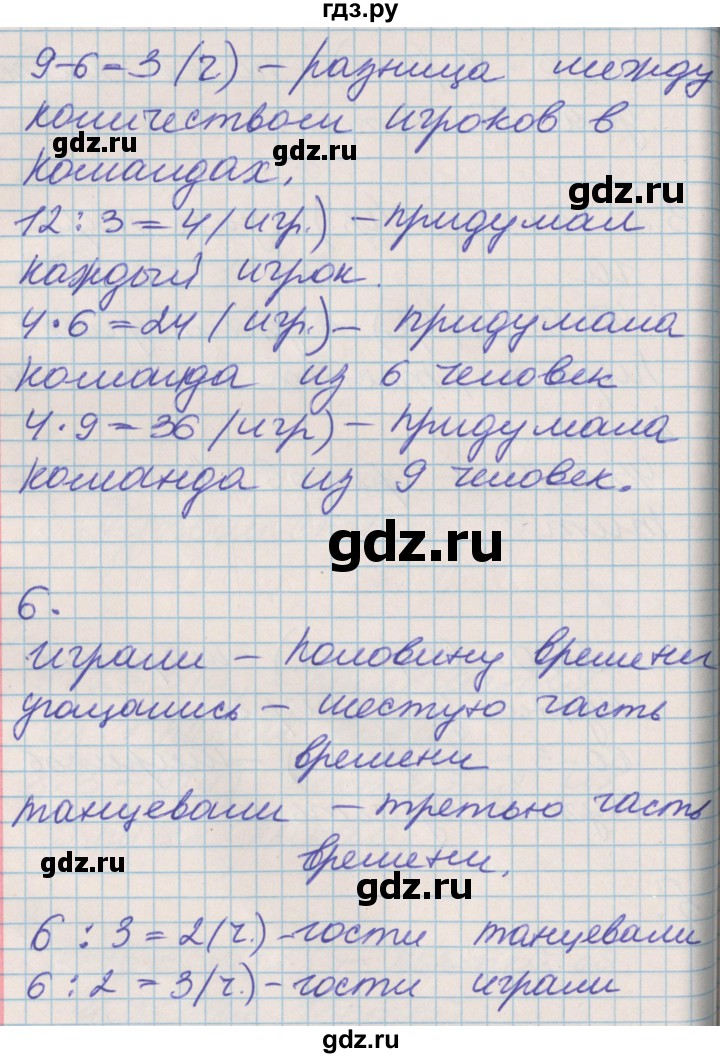 гдз.ру
9-6=3 (ч) – разница между
количеством игроков в
gdz.ru
gdz.ru
командах.
gdz.ru
12:3=4 (игр.) – придумал
каждый игрок.
4·6=24 (игр.) – придумала
команда из 6 человек
4·9=36 (игр) – придумала
команда из 9 человек.
gdz.ru
6.
играли – половину времени
угощались – шестую часть
времени
танцевали – третью часть
gdz.ru
времени.
gdz.ru
6:3=2(ч.) – гости танцевали
6:2=3(ч.) – гости играли
gdz.ru